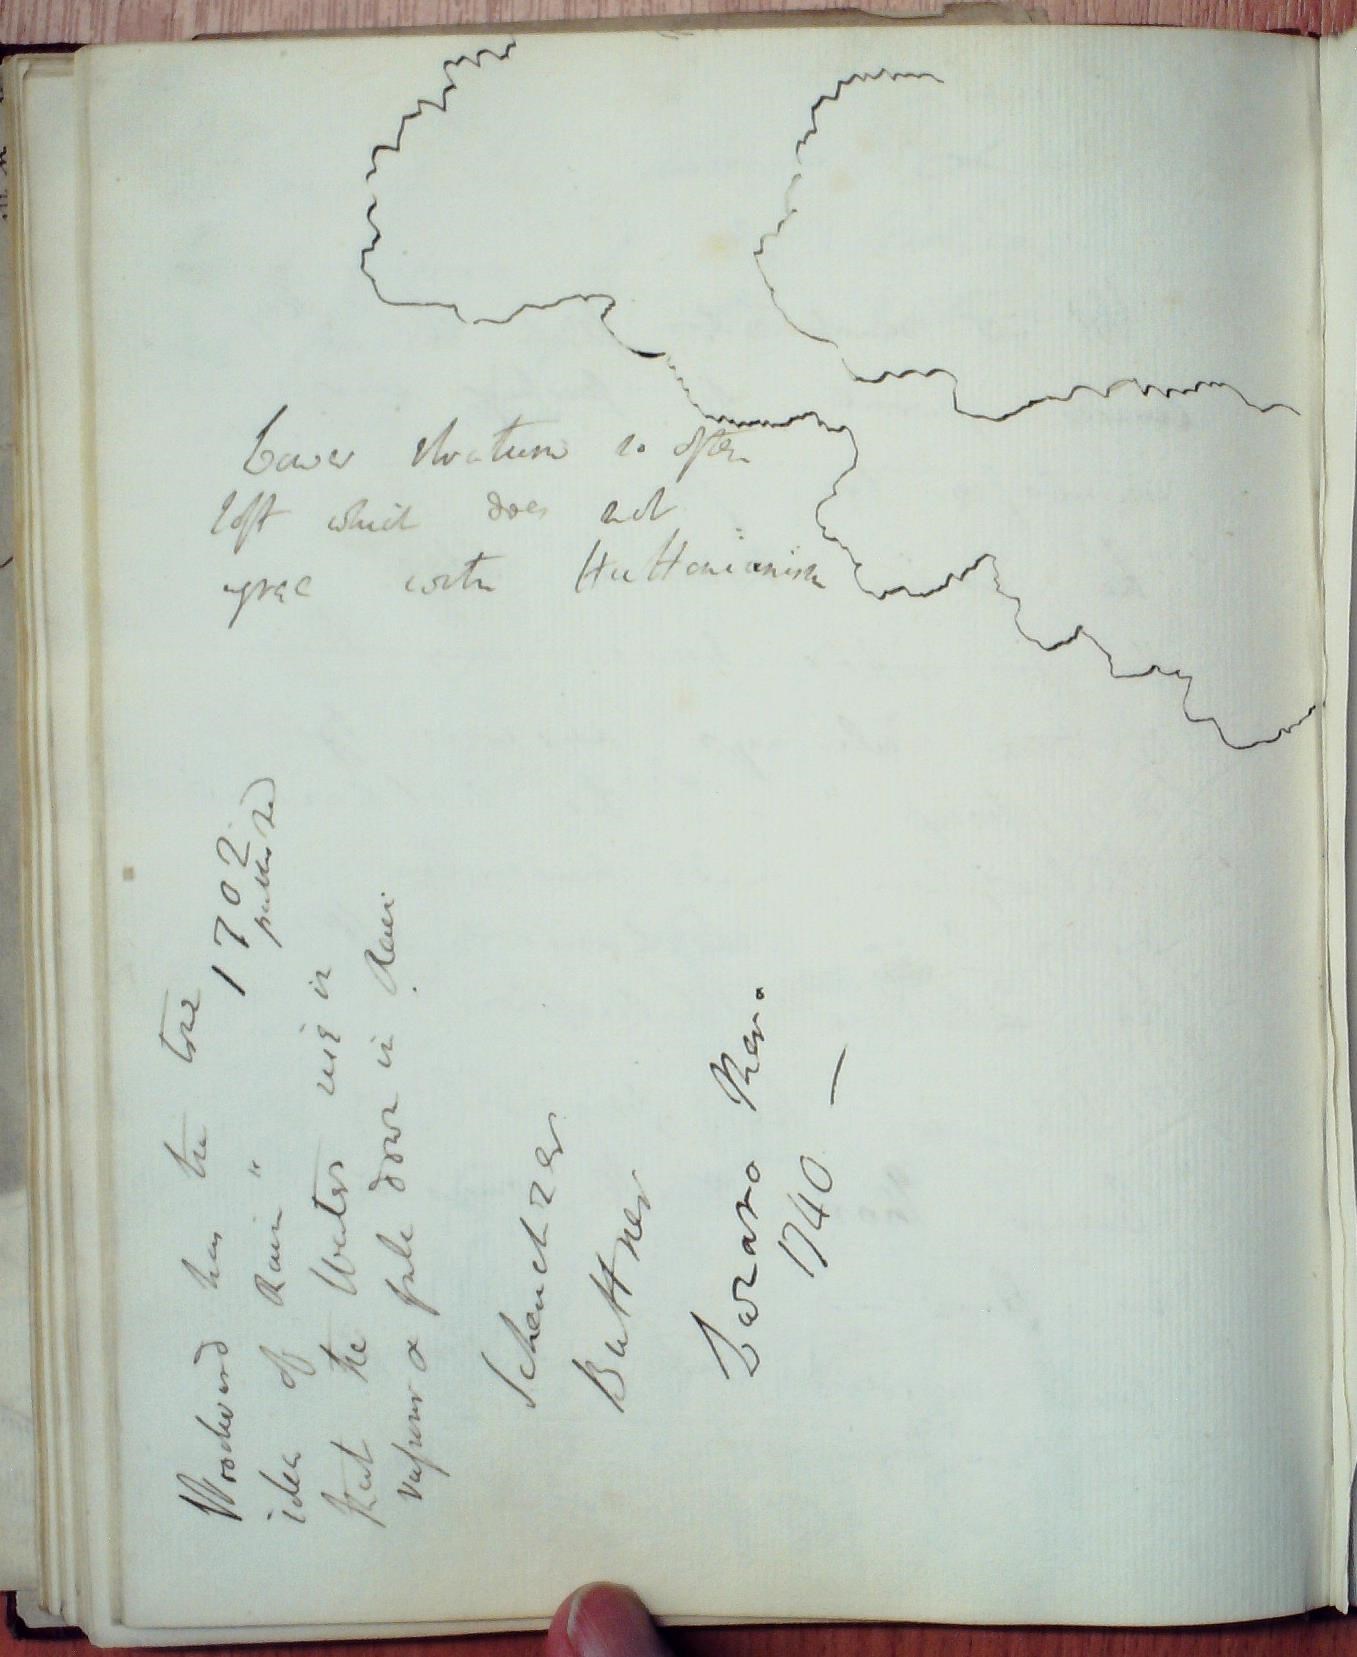 Lower stratum so often
left which does not
agree with Huttonianism
Woodward has the true
idea of Rain " 1702 published
that the Waters rise in
vapour & fall down in Rain
Scheuchzer
Buttner
Lazaro Moro
1740 —